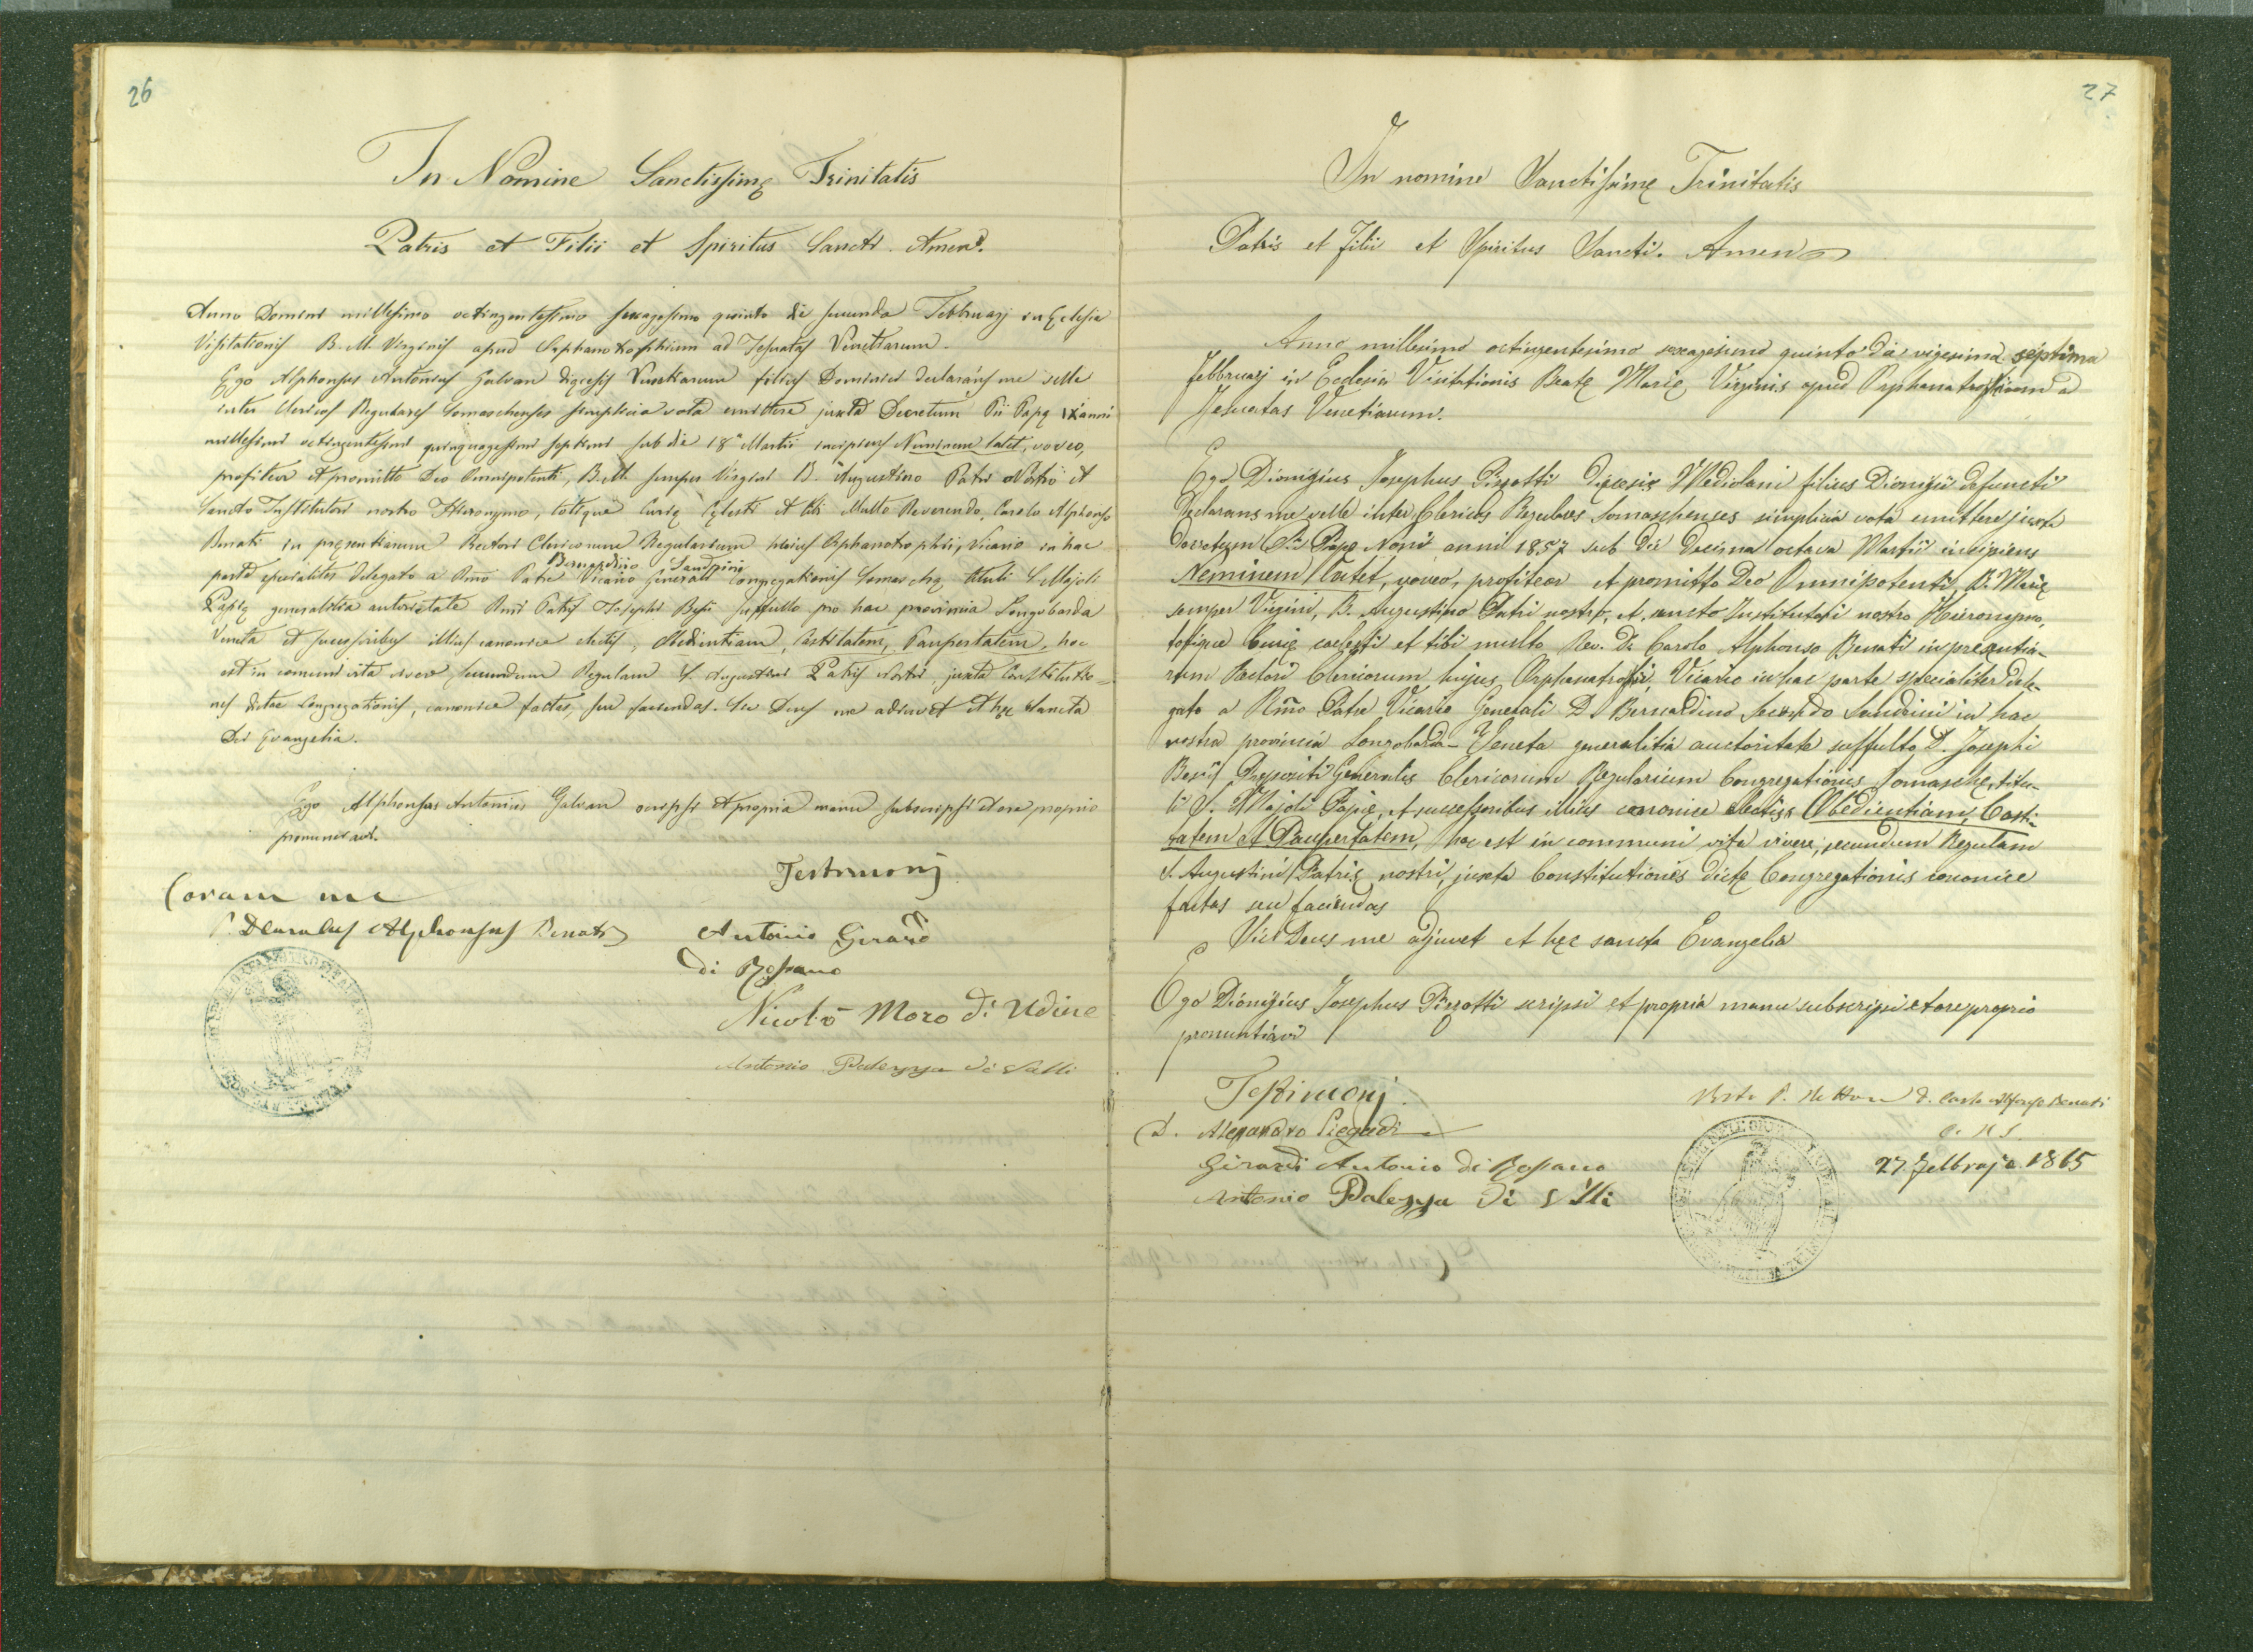 26
In Nomine Sanctissimę Trinitatis
Patris et Filii et Spiritus Sancti. Amen.
Anno Domini millesimo octingentesimo sexagesimo quinto die secunda Februarj in Eclesia
Visitationis B. M. Virginis apud Orphanotrophium ad Jesuatas Venetiarum.
Ego Alphonsus Antonius Galvan dięcesis Venetiarum filius Dominici declarans me velle
inter Clericos Regulares Somaschenses simplicia vota emittere juxta Decretum Pii Papę IX anni
millesimi octingentesimi quinquagesimi septimi sub die 18ª Martii incipiens Neminem latet, voveo,
profiteor et promitto Deo Omnipotenti, B. M. semper Virgini B. Augustino Patri Nostro et
Sancto Institutori nostro Hieronymo, totique Curię Cęlesti et tibi Multo Reverendo, Carolo Alphonso
Benati in pręsentiarum Rectori Clericorum Regularium hujus Orphanotrophii, Vicario in hac
Bernardino Sandrini
parte specialiter delegato a Rm̃o Patre Vicario Generali Congregationis Somaschę, tituli S. Majoli
Papię generalitia autoritate Rmi Patris Josephi Besii suffulto pro hac provincia Longobarda
Veneta et successoribus illius canonice electis, Obedientiam, Castitatem, Paupertatem, hoc
est in comuni vita vivere secundum Regulam S. Augustini Patris Nostri, juxta Constitutio=
nes dictae Congregationis, canonice factas, seu faciendas. Sic Deus me adiuvet et hęc Sancta
Dei Evangelia.
Ego Alphonsus Antonius Galvan scripsi et propria manu subscripsi et ore proprio
pronunciavi.
Testimonj
Coram me
P. D Carolus Alphonsus Benati
Antonio Girardi
di Rossano
Nicolò Moro di Udine
Antonio Palezza di Valli
27
In nomine Sanctissimę Trinitatis
Patris et Filii et Spiritus Sancti. Amen
Anno millesimo octingentesimo sexagesimo quinto die vigesima septima
Febbruarj in Ecclesia Visitationis Beatę Marię Virginis apud Orphanatrophium ad
Jesuatas Venetiarum.
Ego Dionigius Josephus Pizzotti Dięcesis Mediolani filius Dionigii defuncti
Declarans me velle inter Clericos Regulares Somaschenses simplicia vota emittere juxta
Decretum Pii Papę Noni anni 1857 sub die Decima octava Martii incipiens
Neminem latet, voveo, profiteor et promitto Deo Omnipotenti, B. Marię
semper Virgini, B. Augustino Patri nostro, et sancto Institutori nostro Hieronymo,
totique Curię coelesti et tibi multo Rev. D. Carolo Alphonso Benati in presentia-
rum Rectori Clericorum hujus Orphanatrofii, Vicario in hac parte specialiter dele-
gato a Rm̃o Patre Vicario Generali D. Bernardino Secondo Sandrini in hac
nostra provincia Longobarda-Veneta generalitia auctoritate suffulto D. Josephi
Besii Prepositi Generalis Clericorum Regularium Congregationis Somaschę, titu-
li S. Majoli Papię, et successoribus illius canonice electis, Obedientiam, Casti-
tatem et Paupertatem, hoc est in communi vita vivere, secundum Regulam
S. Augustini Patris nostri, juxta Constitutiones dictę Congregationis canonice
factas seu faciendas
Sic Deus me adjuvet et hęc sancta Evangelia
Ego Dionigius Josephus Pizzotti scripsi et propria manu subscripsi et ore proprio
pronuntiavi
Testimonj
D. Alessandro Piegadi
Girardi Antonio di Rossano
Antonio Palezza di Valli
Visto P. Rettore D. Carlo Alfonso Benati
C. R. S.
27 Febbrajo 1865